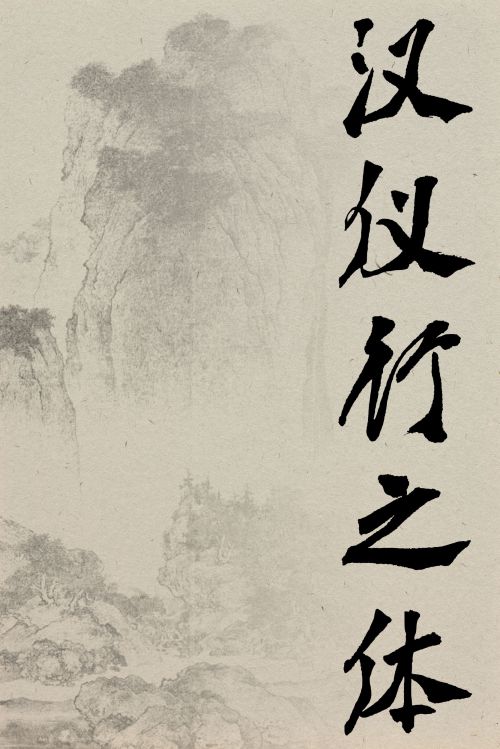 汉仪行之体